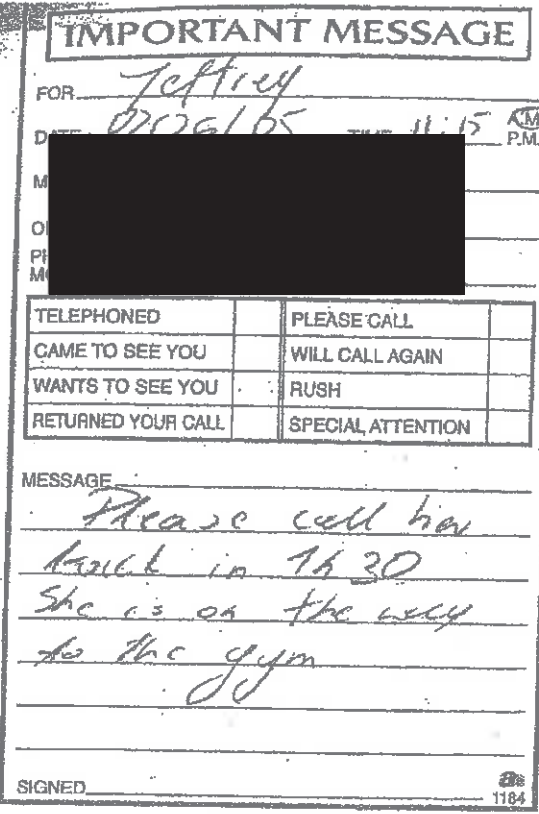 IMPORTANT MESSAGE
FOR Jeffrey
DATE 07/06/05 TIME 11:15 A.M.
P.M.
M
O
PH
MO
TELEPHONED PLEASE CALL
CAME TO SEE YOU WILL CALL AGAIN
WANTS TO SEE YOU RUSH
RETURNED YOUR CALL SPECIAL ATTENTION
MESSAGE
Please call her
back in 1h 30
She is on the way
to the gym
SIGNED
1184